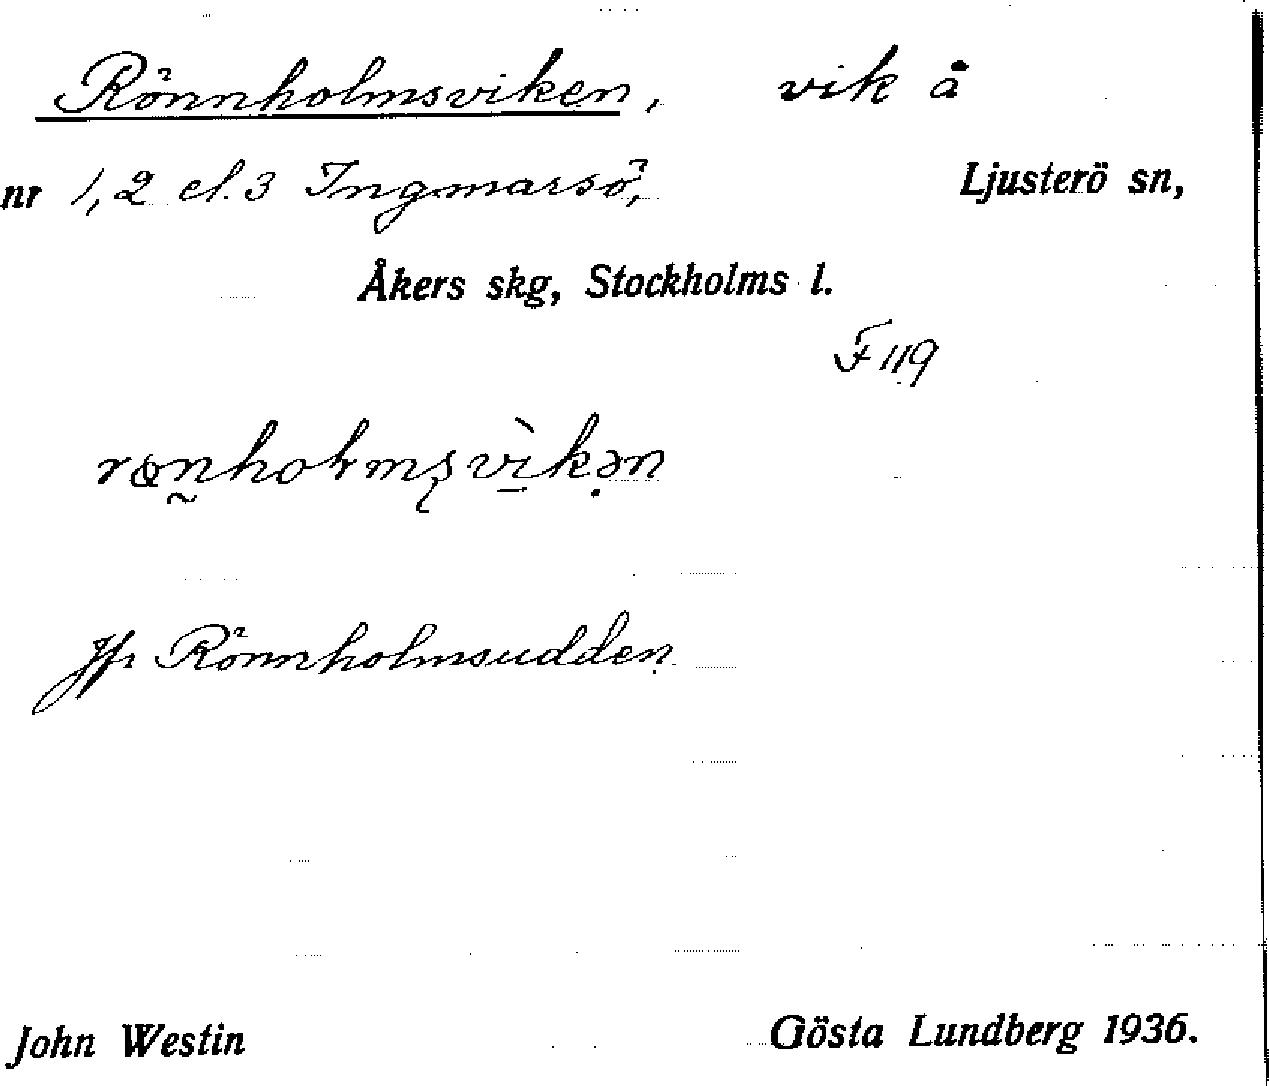 Rönnholmsviken, vik å
nr 1, 2 el. 3 Ingmarsö, Ljusterö sn,
Åkers skg, Stockholms l.
F 119
Jfr Rönnholmsudden
John Westin Gösta Lundberg 1936.